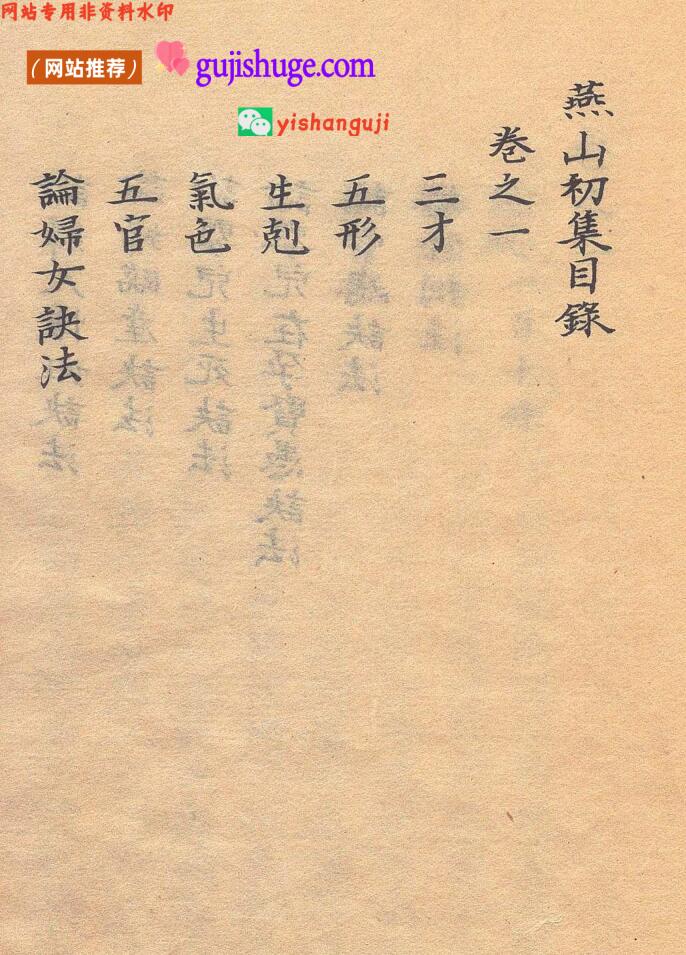 网站专用非资料水印
（网站推荐）
gujishuge.com
yishanguji
燕山初集目錄
卷之一
三才
五形
生剋
氣色
五官
論婦女訣法